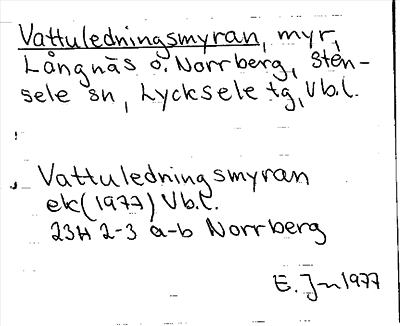 Vattuledningsmyran, myr,
Långnäs o. Norrberg, Sten-
sele sn, Lycksele tg, Vb.l.
Vattuledningsmyran
ek (1977) Vb.l.
23H 2-3 a-b Norrberg
E. Jn 1977